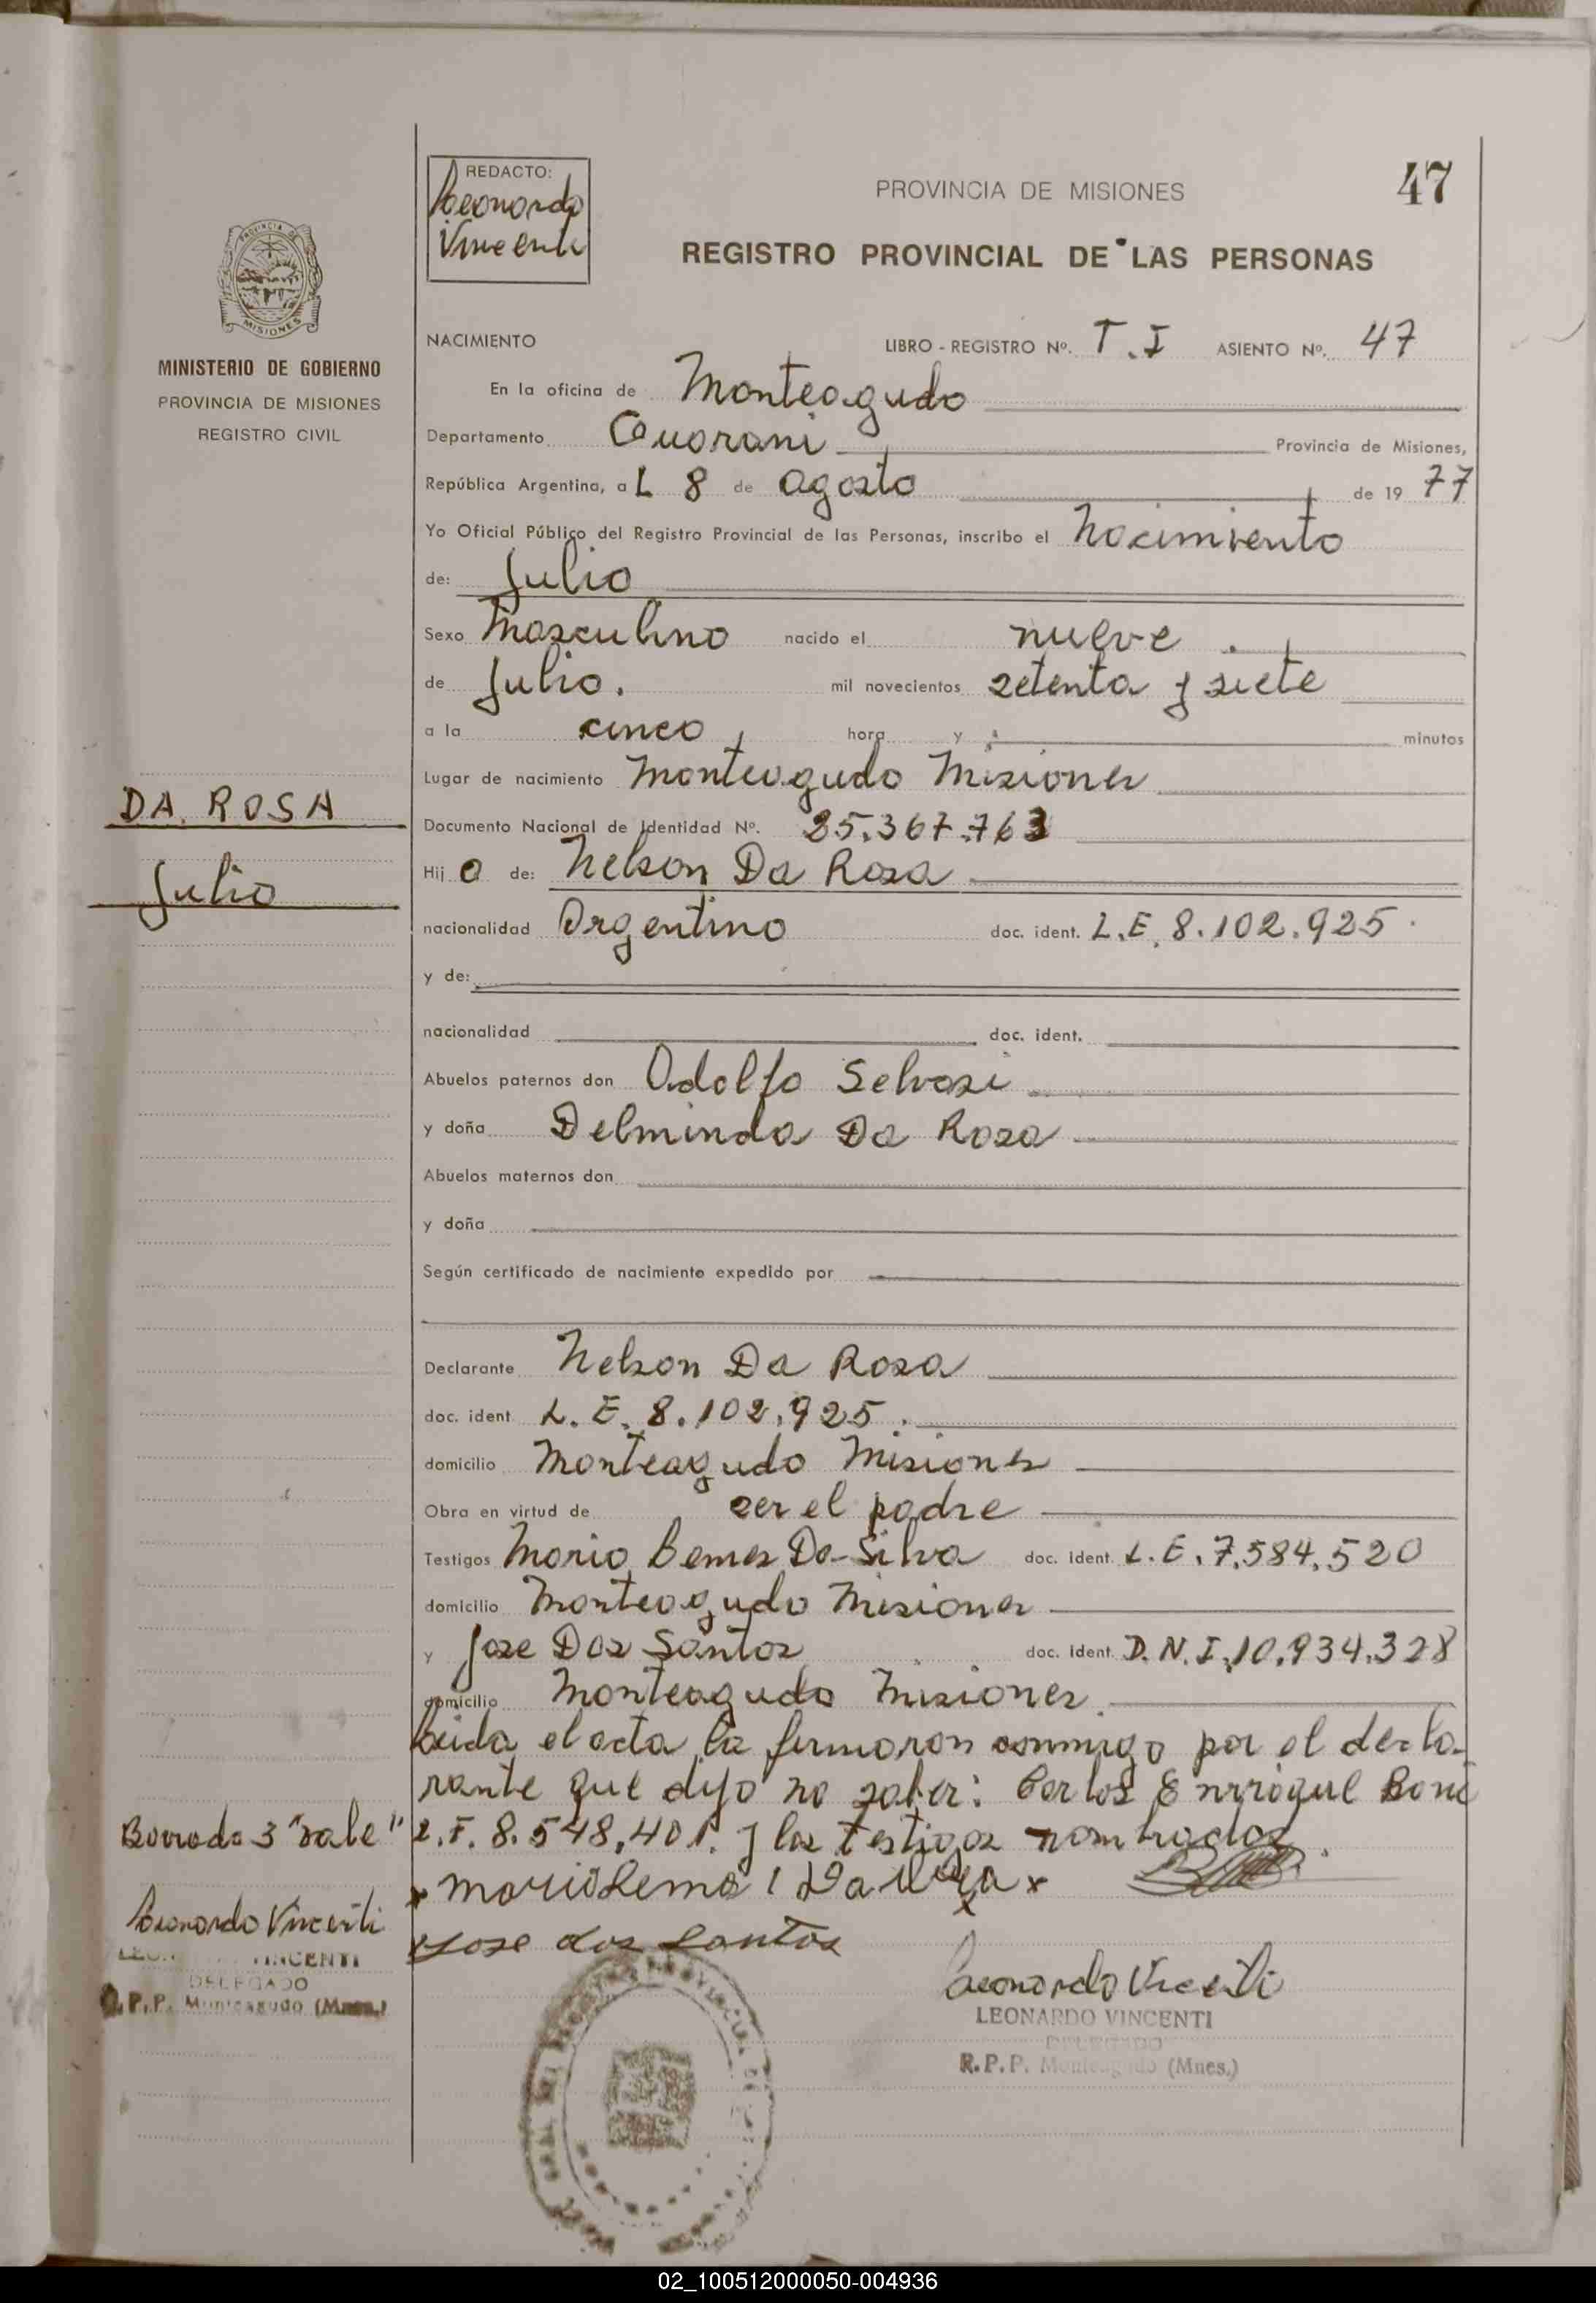 REDACTO:
Leonardo
Vincenti
PROVINCIA DE MISIONES
47
REGISTRO PROVINCIAL DE LAS PERSONAS
MISIONES
MINISTERIO DE GOBIERNO
PROVINCIA DE MISIONES
REGISTRO CIVIL
NACIMIENTO LIBRO - REGISTRO Nº. T.I ASIENTO Nº. 47
En la oficina de Monteagudo
Departamento Guarani Provincia de Misiones,
República Argentina, a L 8 de agosto de 19 77
Yo Oficial Público del Registro Provincial de las Personas, inscribo el Nacimiento
de: Julio
Sexo Masculino nacido el nueve
de Julio. mil novecientos setenta y siete
a la cinco hora y minutos
Lugar de nacimiento Monteagudo Misiones
DA ROSA
Julio
Documento Nacional de Identidad Nº. 25.367.763
Hij o de: Nelson Da Rosa
nacionalidad Argentino doc. ident. L.E. 8.102.925
y de:
nacionalidad doc. ident.
Abuelos paternos don Adolfo Selvasi
y doña Delminda Da Rosa
Abuelos maternos don
y doña
Según certificado de nacimiento expedido por
Declarante Nelson Da Rosa
doc. ident L.E. 8.102.925.
domicilio Monteagudo Misiones
Obra en virtud de ser el padre
Testigos Mario Lemes Da Silva doc. ident. L.E. 7.584.520
domicilio Monteagudo Misiones
y Jose Dos Santos doc. ident. D.N.I. 10.934.328
domicilio Monteagudo Misiones
Leida el acta la firmaron conmigo por el decla-
rante que dijo no saber: Carlos Enrrique
L.E. 8.548.401. y los testigos nombrados
Borrado 3 "vale"
Jose dos Santos
Leonardo Vincenti
VINCENTI
DELEGADO
R.P.P. Monteagudo (Mnes.)
Leonardo Vincenti
LEONARDO VINCENTI
DELEGADO
R.P.P. Monteagudo (Mnes.)
02_100512000050-004936